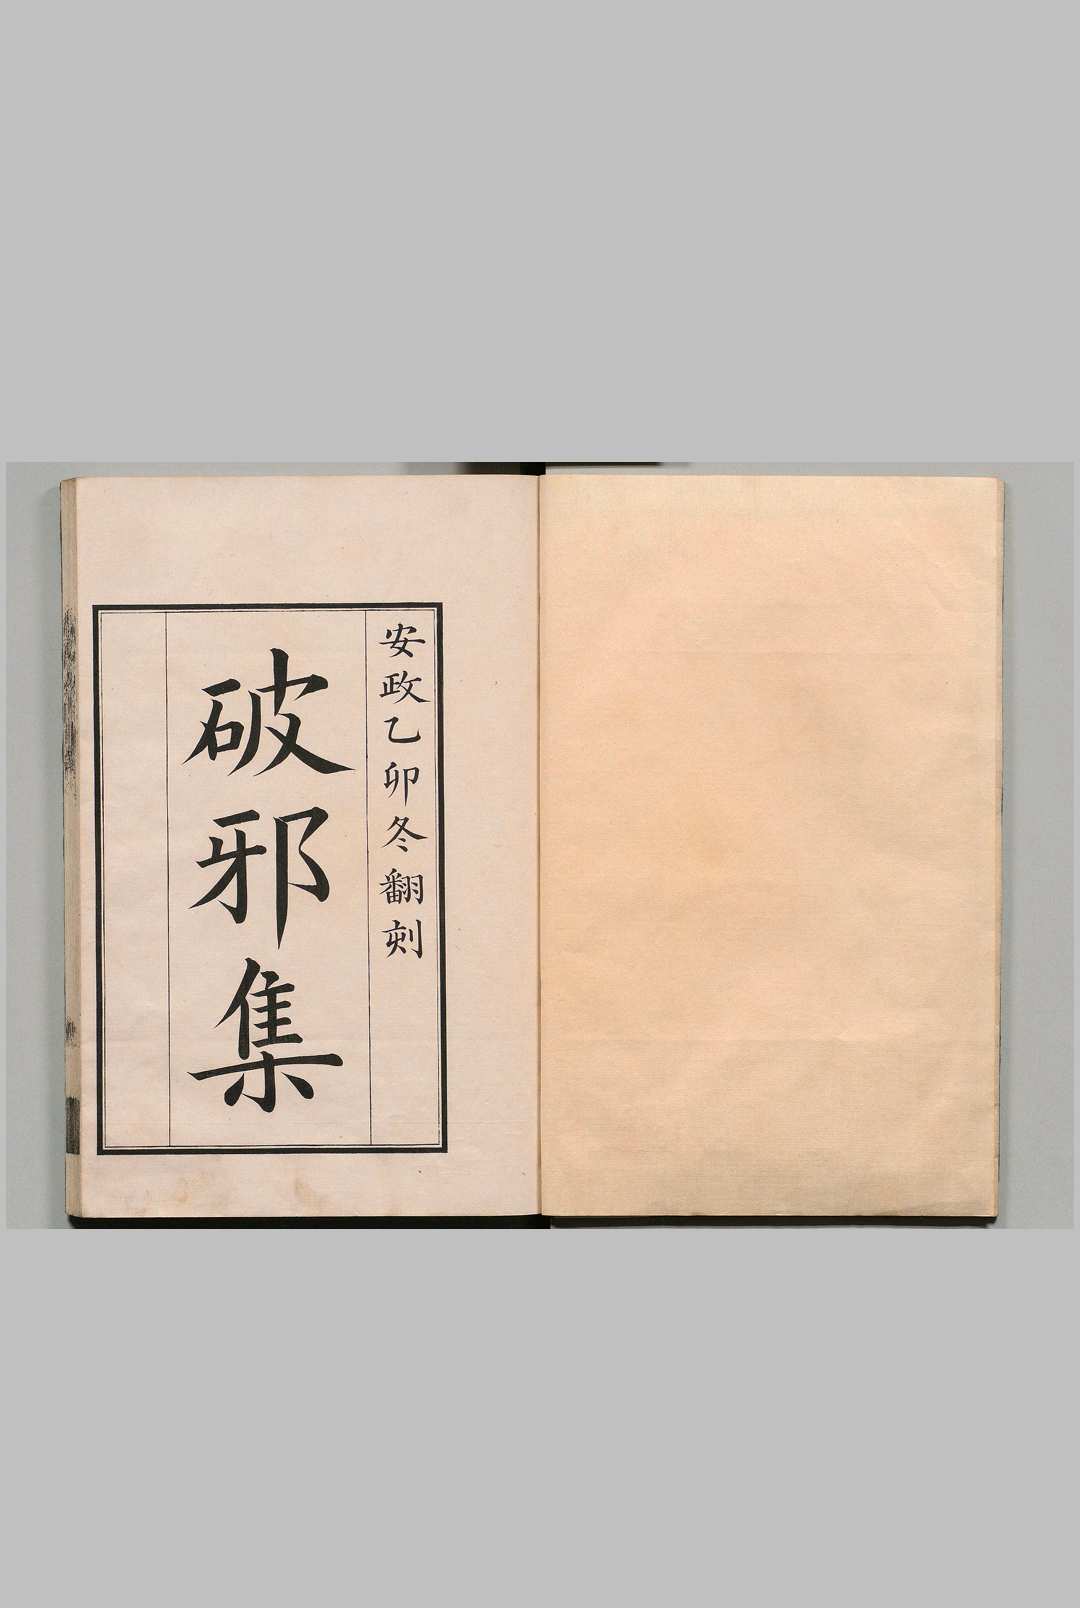 安政乙卯冬翻刻
破邪集